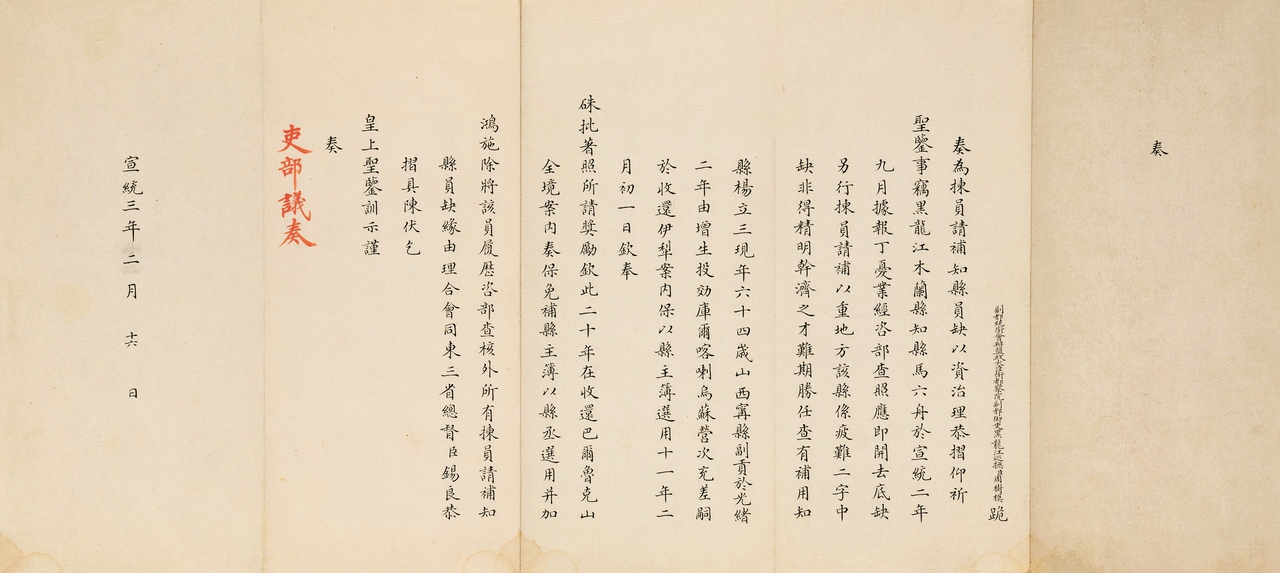 奏
副都統銜會辦鹽政大臣銜都察院副都御史黑龍江巡撫臣周樹模跪
奏為揀員請補知縣員缺以資治理恭摺仰祈
聖鑒事竊黑龍江木蘭縣知縣馬六舟於宣統二年
九月據報丁憂業經咨部查照應即開去底缺
另行揀員請補以重地方該縣係疲難二字中
缺非得精明幹濟之才難期勝任查有補用知
縣楊立三現年六十四歲山西寗縣副貢於光緒
二年由增生投効庫爾喀喇烏蘇營次充差嗣
於收還伊犁案內保以縣主簿選用十一年二
月初一日欽奉
硃批著照所請獎勵欽此二十年在收還巴爾魯克山
全境案內奏保免補縣主簿以縣丞選用并加
鴻施除將該員履歷咨部查核外所有揀員請補知
縣員缺緣由理合會同東三省總督臣錫良恭
摺具陳伏乞
皇上聖鑒訓示謹
奏
吏部議奏
宣統三年二月十六日